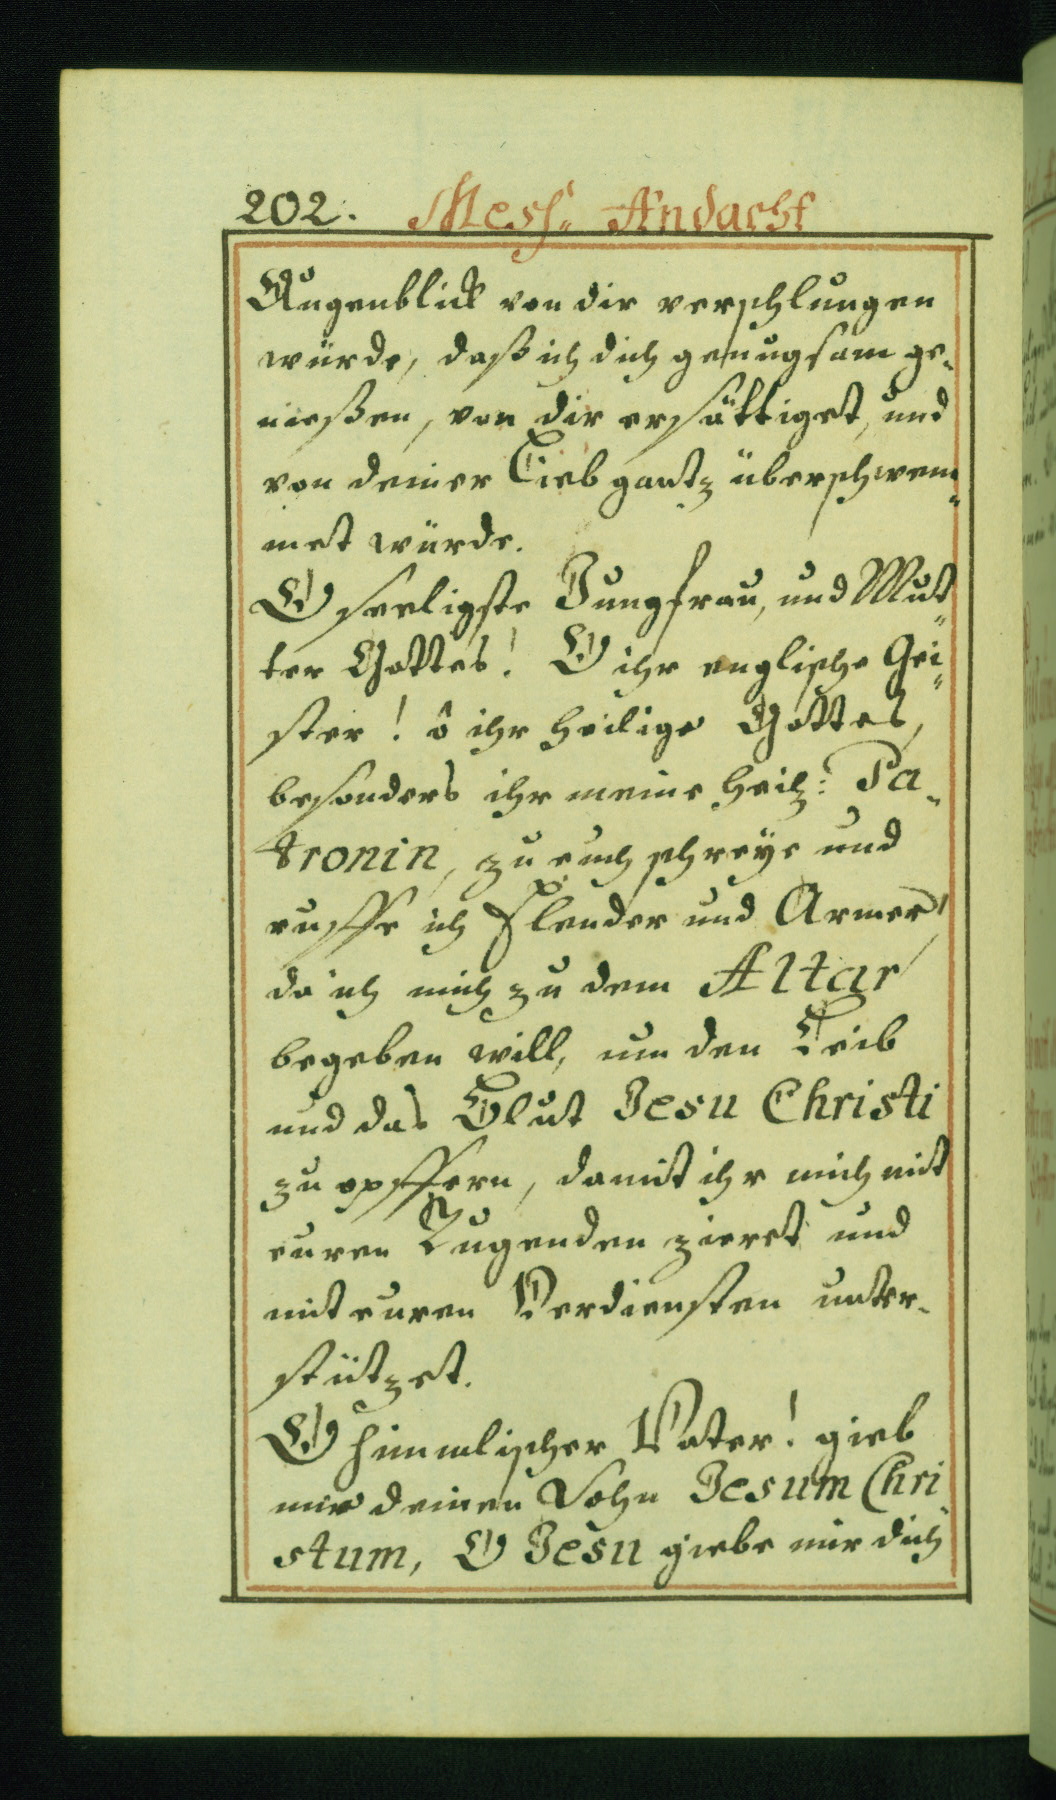 202. Mess= Andacht
Augenblick von dir verschlungen
würde, daß ich dich genugsam ge=
nießen, von dir ersättiget, und
von deiner Lieb gantz überschwem=
met würde.
O seeligste Jungfrau, und Mut=
ter Gottes! O ihr englische Gei=
ster! ô ihr heilige Gottes,
besonders ihr meine heil: Pa=
tronin, zu euch schreye und
ruffe ich Elender und Armer,
da ich mich zu dem Altar
begeben will, um den Leib
und das Blut Jesu Christi
zu opffern, damit ihr mich mit
euren Tugenden zieret und
mit euren Verdiensten unter=
stützet.
O himmlischer Vater! gieb
mir deinen Sohn Jesum Chri
stum, O Jesu giebe mir dich